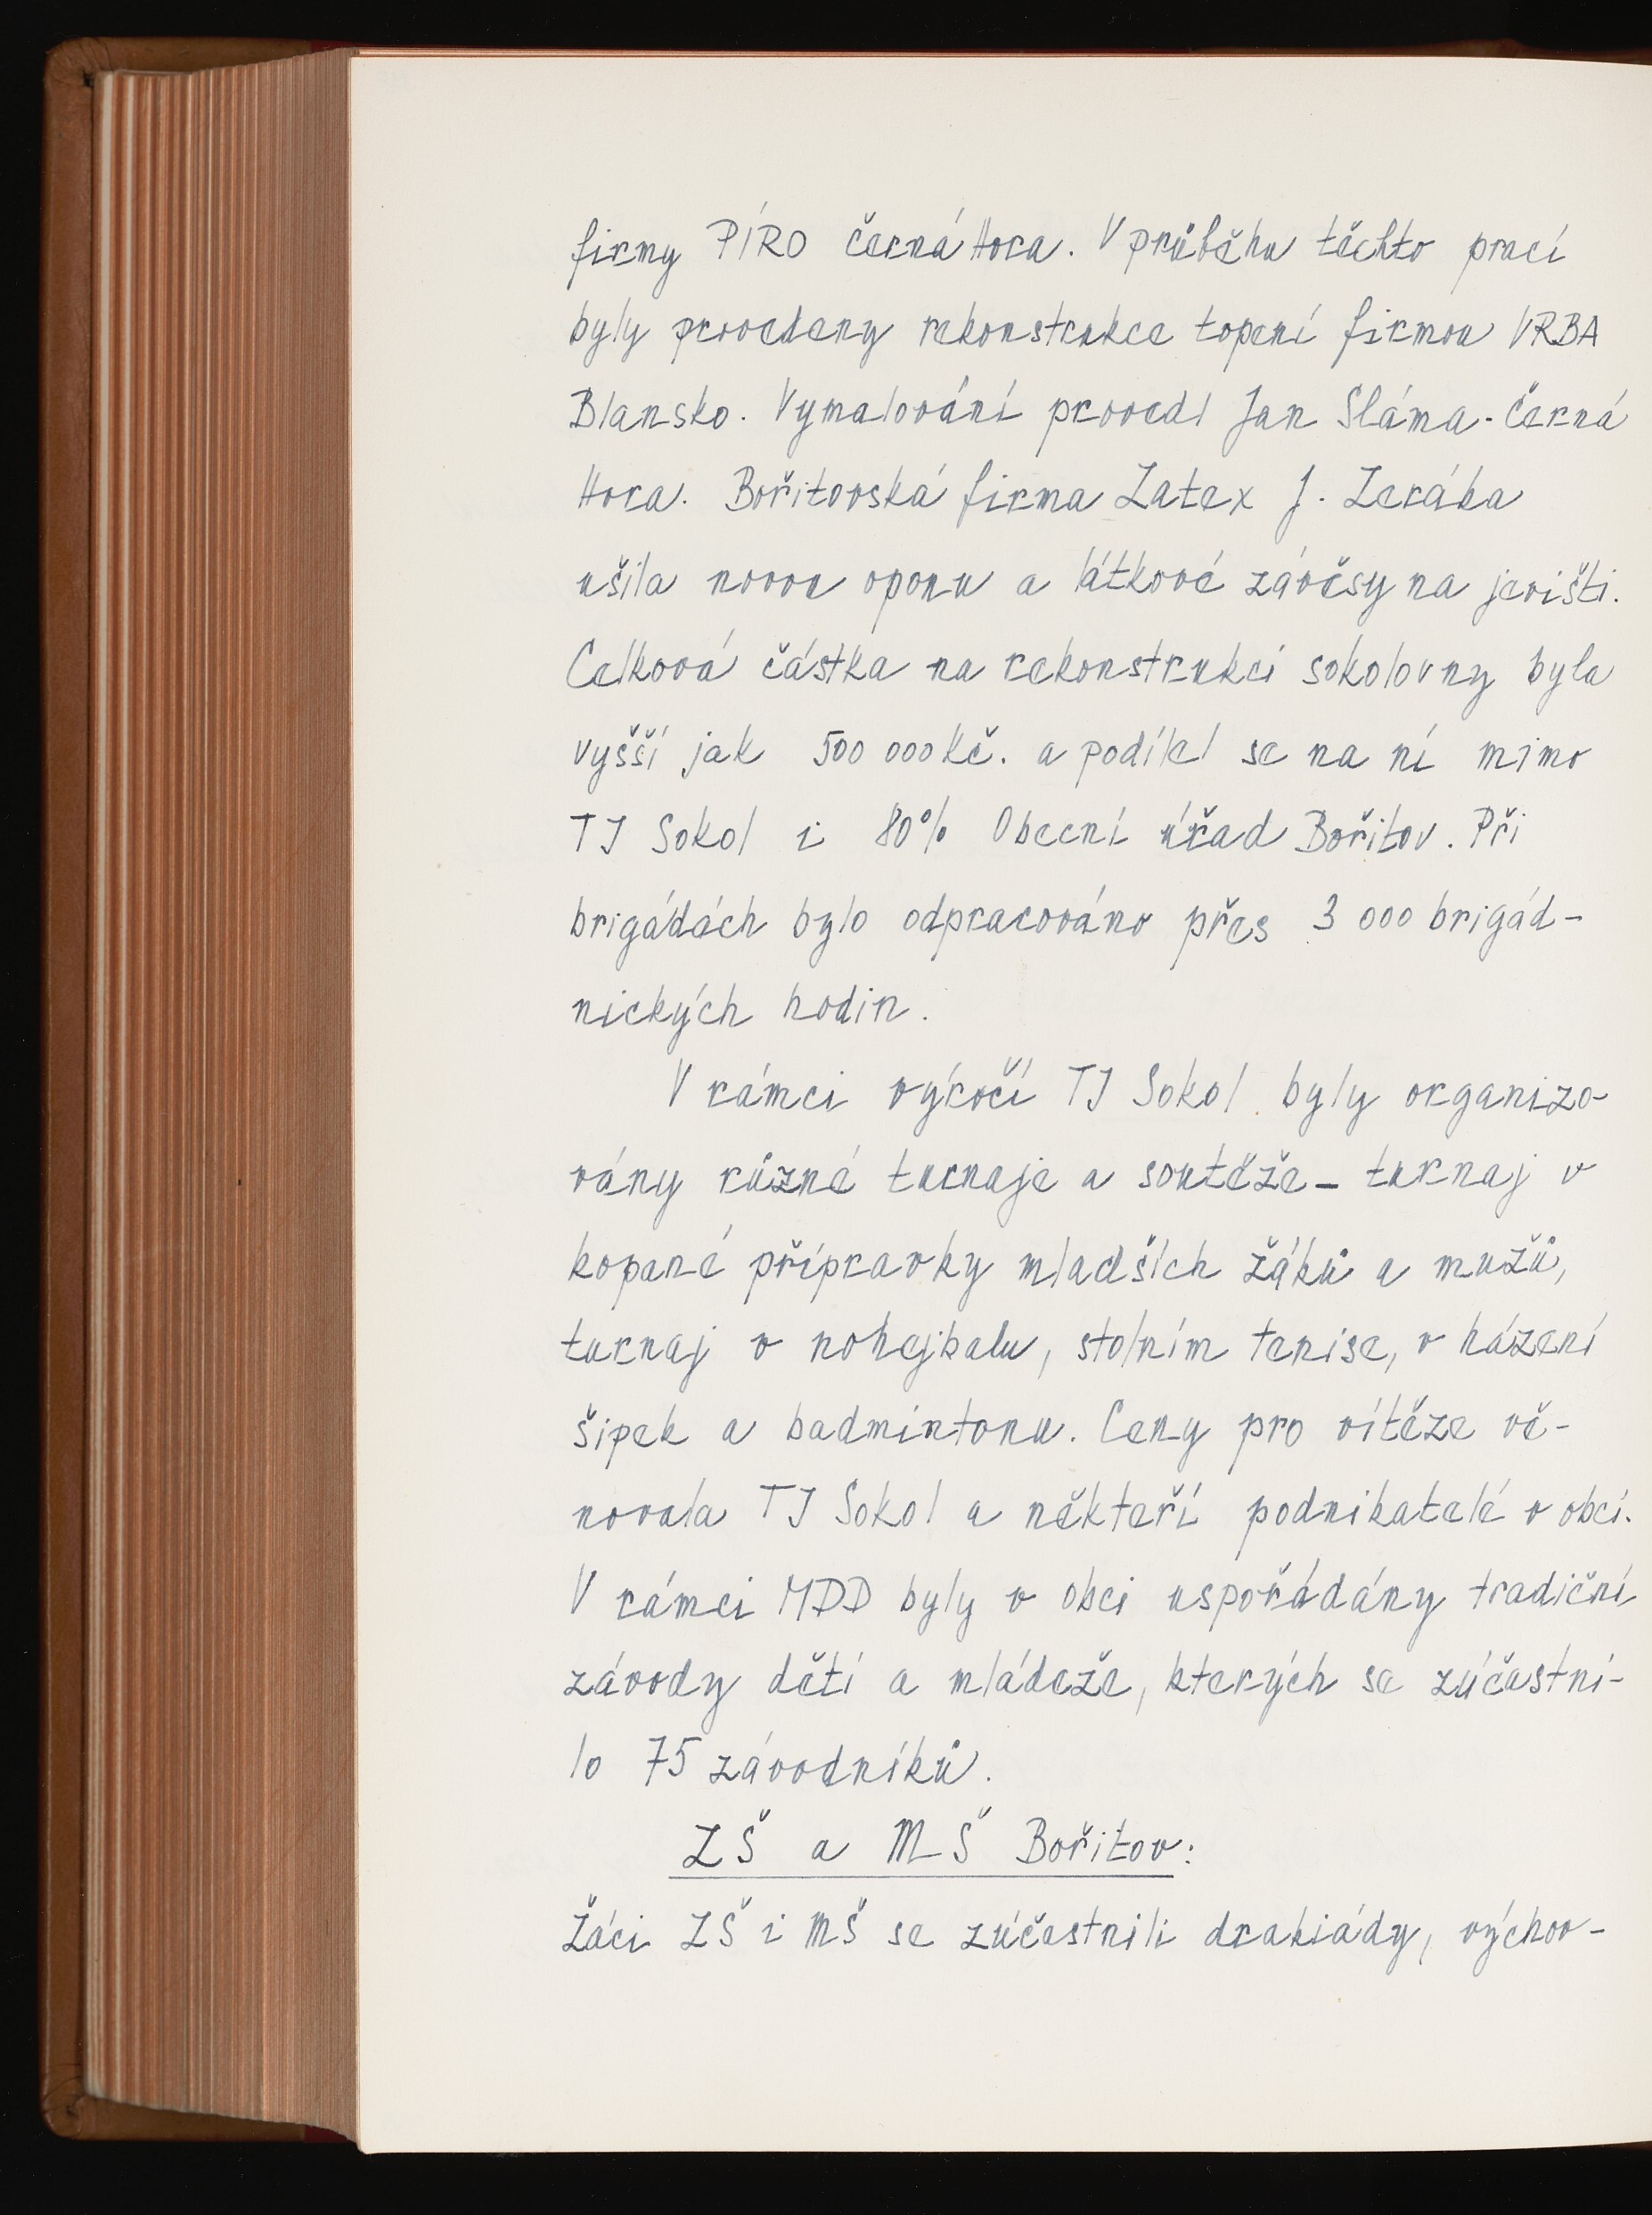 firmy PÍRO Černá Hora. V průběhu těchto prací
byly provedeny rekonstrukce topení firmou VRBA
Blansko. Vymalování provedl Jan Sláma - Černá
Hora. Bořitovská firma Zatex J. Zeráka
ušila novou oponu a látkové závěsy na jevišti.
Celková částka na rekonstrukci sokolovny byla
vyšší jak 500 000 kč. a podílel se na ní mimo
TJ Sokol i 80% Obecní úřad Bořitov. Při
brigádách bylo odpracováno přes 3 000 brigád-
nických hodin.
V rámci výročí TJ Sokol byly organizo-
vány různé turnaje a soutěže - turnaj v
kopané přípravky mladších žáků a mužů,
turnaj v nohejbalu, stolním tenise, v házení
šipek a badmintonu. Ceny pro vítěze vě-
novala TJ Sokol a někteří podnikatelé v obci.
V rámci MDD byly v obci uspořádány tradiční
závody dětí a mládeže, kterých se zúčastni-
lo 75 závodníků.
ZŠ a MŠ Bořitov:
Žáci ZŠ i MŠ se zúčastnili drakiády, výchov-